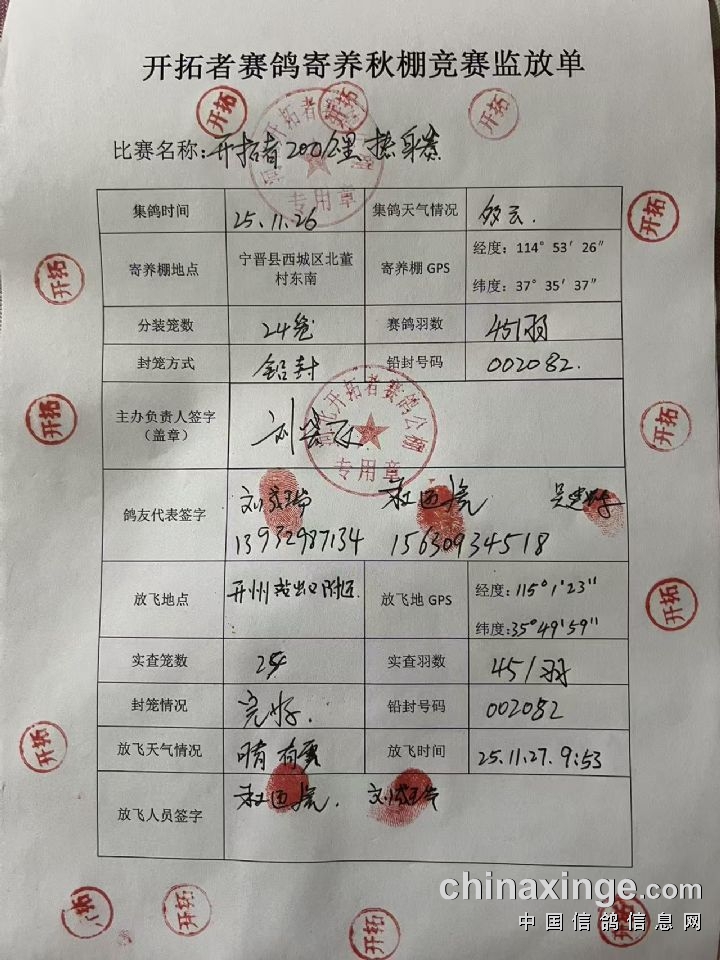 开拓者赛鸽寄养秋棚竞赛监放单
开拓
开拓
开拓
比赛名称：开拓者200公里热身赛
专用章
集鸽时间 25.11.26 集鸽天气情况 多云.
开拓
寄养棚地点 宁晋县西城区北董村东南 寄养棚 GPS 经度：114°53′26″
纬度：37°35′37″
开拓
分装笼数 24笼 赛鸽羽数 451羽
封笼方式 铅封 铅封号码 002082.
主办负责人签字
（盖章）
开拓者赛鸽公棚
专用章
开拓
开拓
鸽友代表签字
13932987134 15630934518
放飞地点 开州站出口附近. 放飞地 GPS 经度：115°1′23″
纬度：35°49′59″
开拓
实查笼数 24 实查羽数 451羽
封笼情况 完好. 铅封号码 002082
开拓
放飞天气情况 晴有雾 放飞时间 25.11.27.9:53
放飞人员签字
开拓
开拓
开拓
chinaxinge.com
中国信鸽信息网